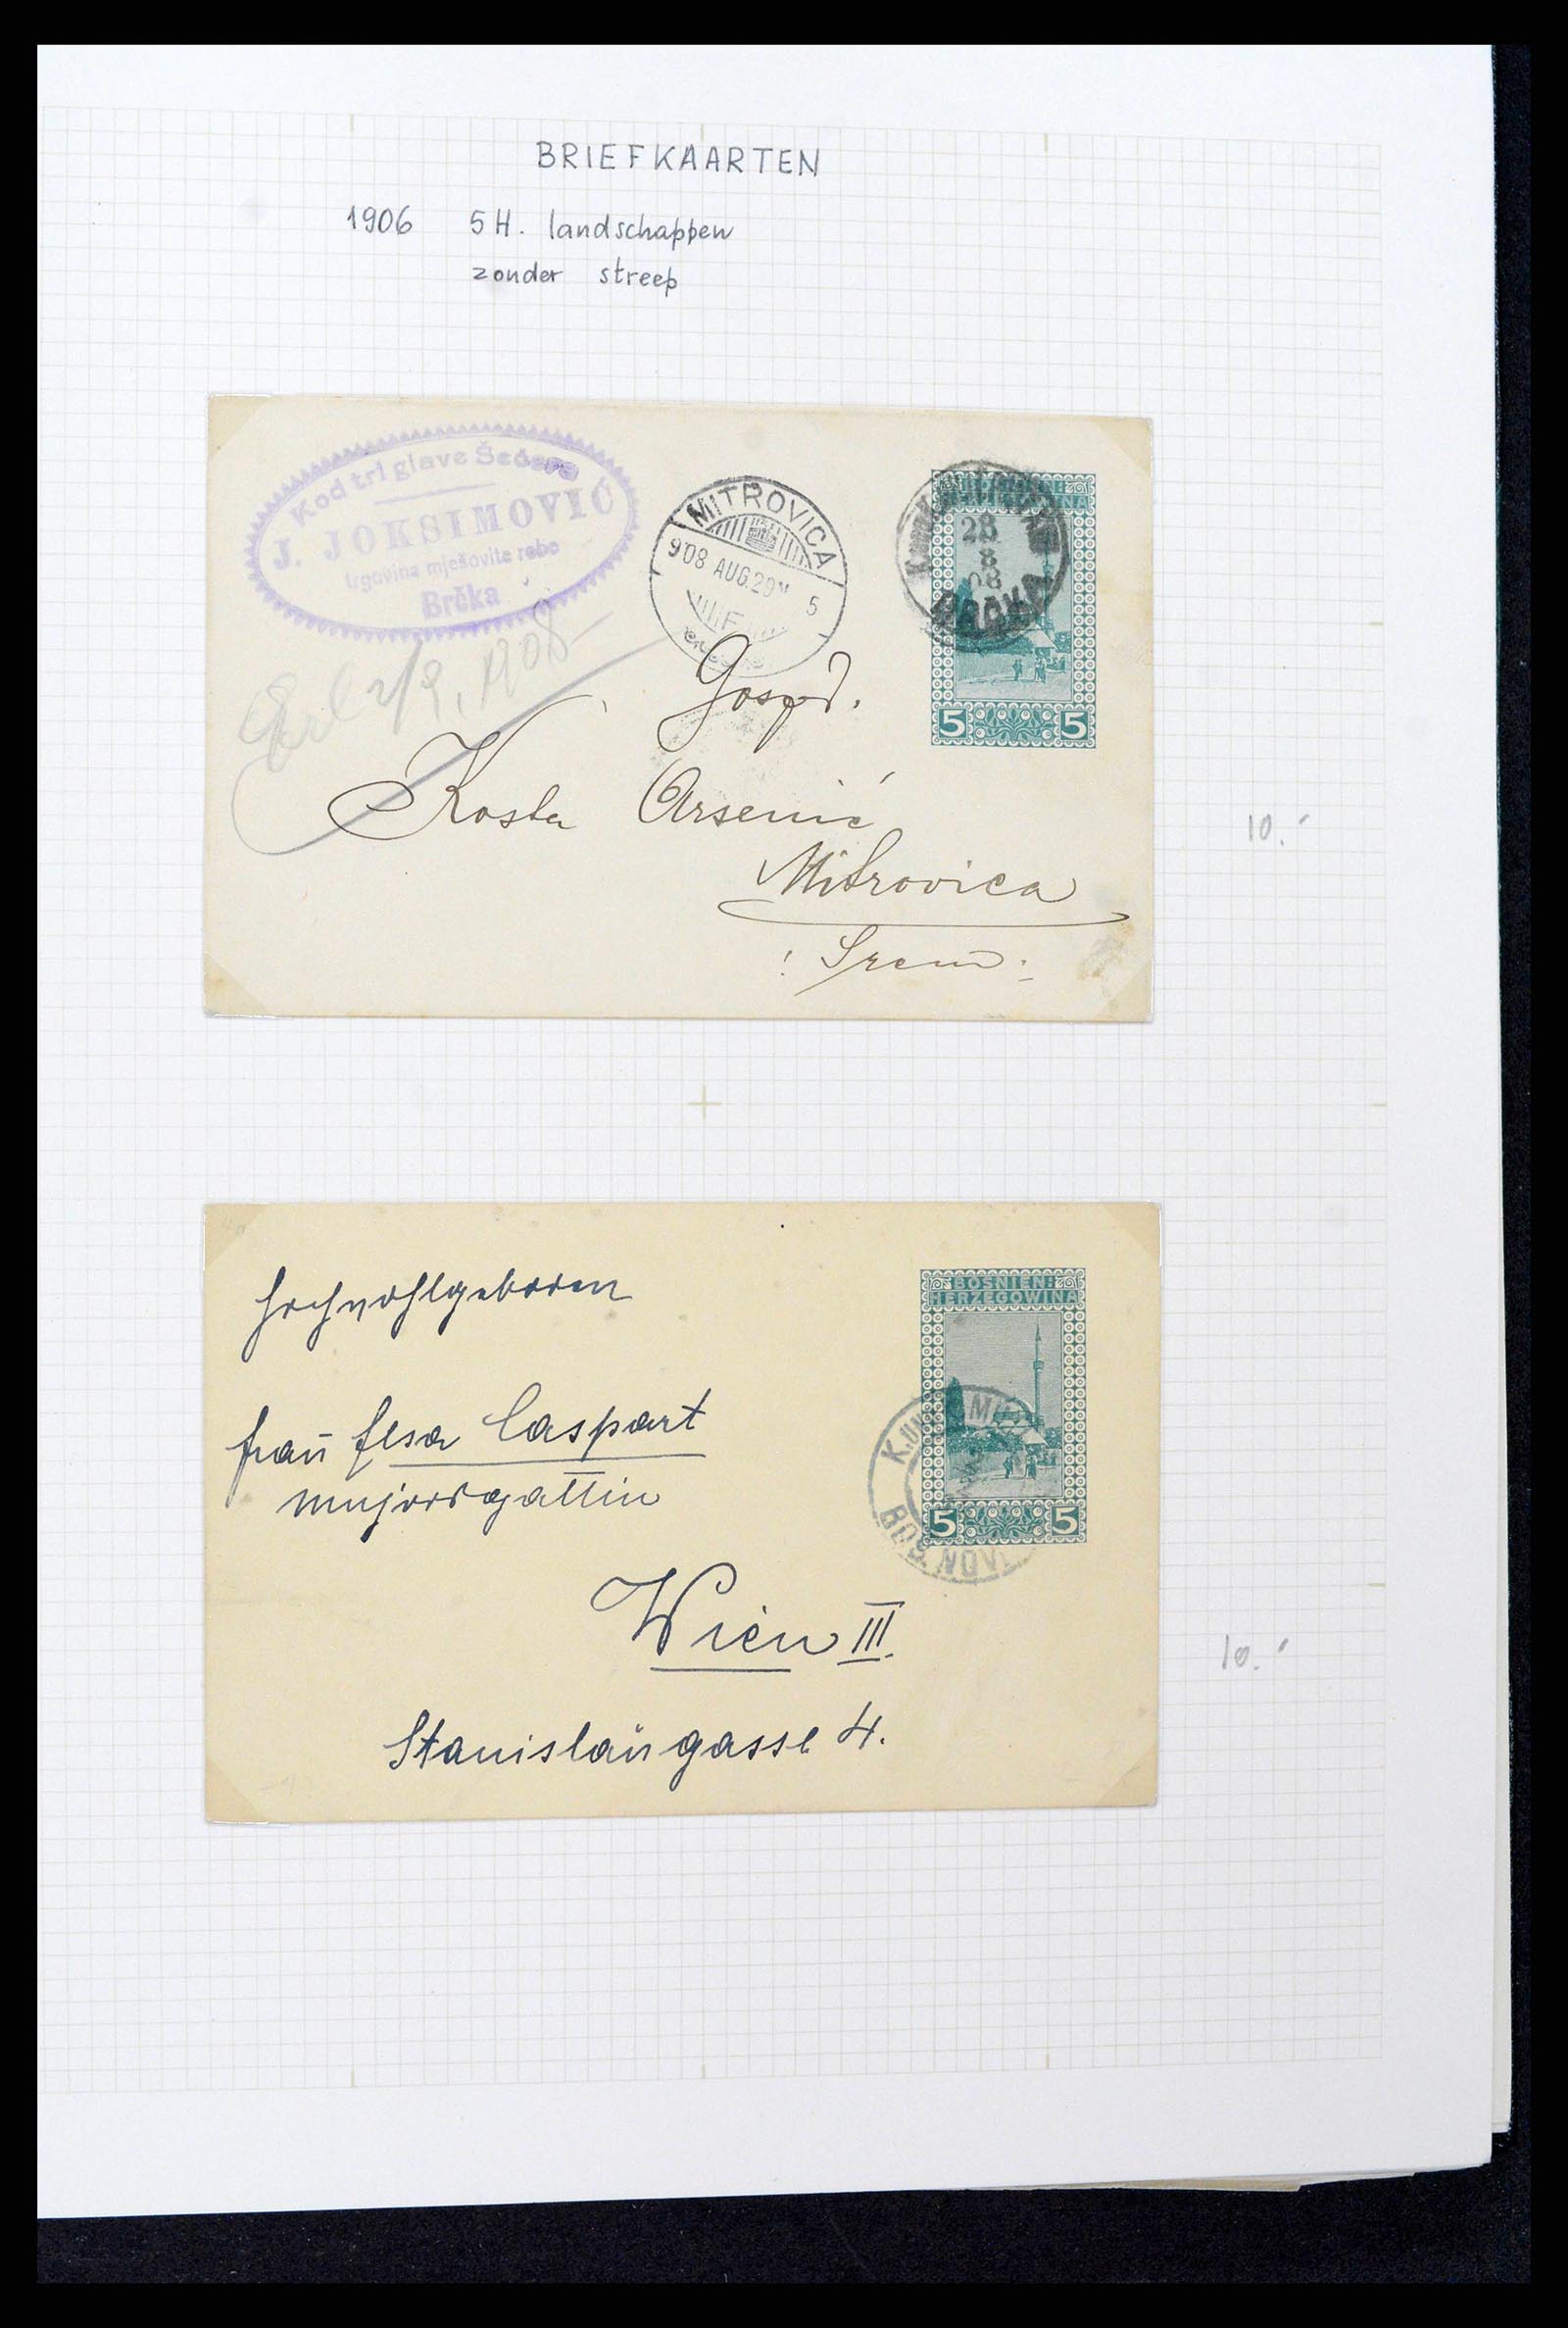 BRIEFKAARTEN
1906 5H. landschappen
zonder streep
Kod tri glave Šećera
J. JOKSIMOVIĆ
trgovina mješovite robe
Brčka
MITROVICA
908 AUG. 29 5
28
8
08
BRČKA
5 5
2/9, 1908
Gosp d.
Kosta Arsenić
Mitrovica
Srem
10.-
BOSNIEN-
HERZEGOWINA
5 5
BOS. NOVI
Hochwohlgeboren
Frau Elsa Caspart
Majorsgattin
Wien III.
Stanislausgasse 4.
10.-